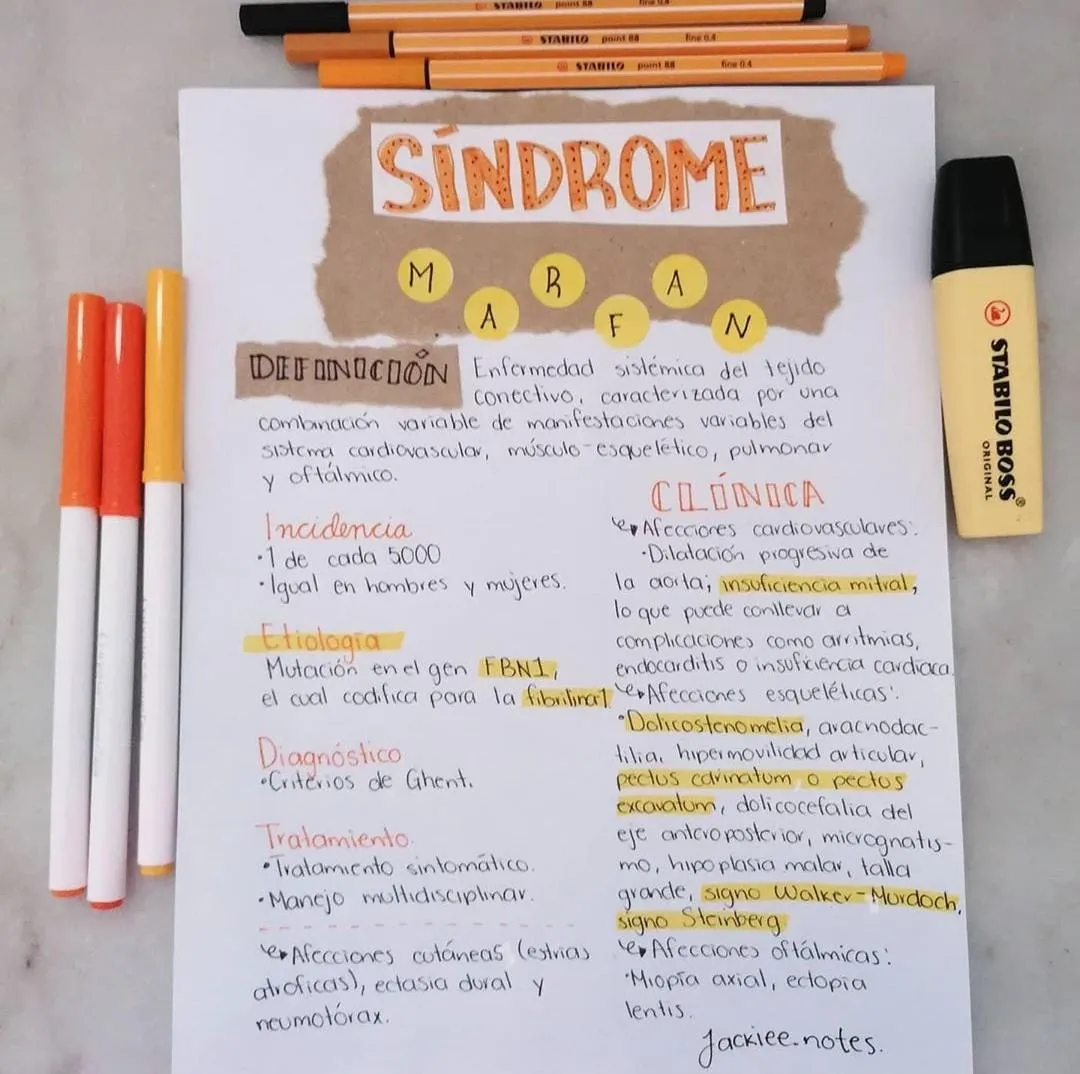 STABILO point 88 fine 0.4
STABILO point 88 fine 0.4
STABILO point 88 fine 0.4
SÍNDROME
MARFAN
DEFINICIÓN
Enfermedad sistémica del tejido
conectivo, caracterizada por una
combinación variable de manifestaciones variables del
sistema cardiovascular, músculo-esquelético, pulmonar
y oftálmico.
Incidencia
·1 de cada 5000
·Igual en hombres y mujeres.
Etiología
Mutación en el gen FBN1,
el cual codifica para la fibrilina1
Diagnóstico
·Criterios de Ghent.
Tratamiento.
·Tratamiento sintomático.
·Manejo multidisciplinar.
Afecciones cutáneas (estrías
atróficas), ectasia dural y
neumotórax.
CLÍNICA
Afecciones cardiovasculares:
·Dilatación progresiva de
la aorta; insuficiencia mitral,
lo que puede conllevar a
complicaciones como arritmias,
endocarditis o insuficiencia cardíaca.
Afecciones esqueléticas:
·Dolicostenomelia, aracnodac-
tilia, hipermovilidad articular,
pectus carinatum o pectus
excavatum, dolicocefalia del
eje anteroposterior, micrognatis-
mo, hipoplasia malar, talla
grande, signo Walker-Murdoch,
signo Steinberg
Afecciones oftálmicas:
·Miopía axial, ectopia
lentis.
Jackiee.notes.
STABILO BOSS®
ORIGINAL